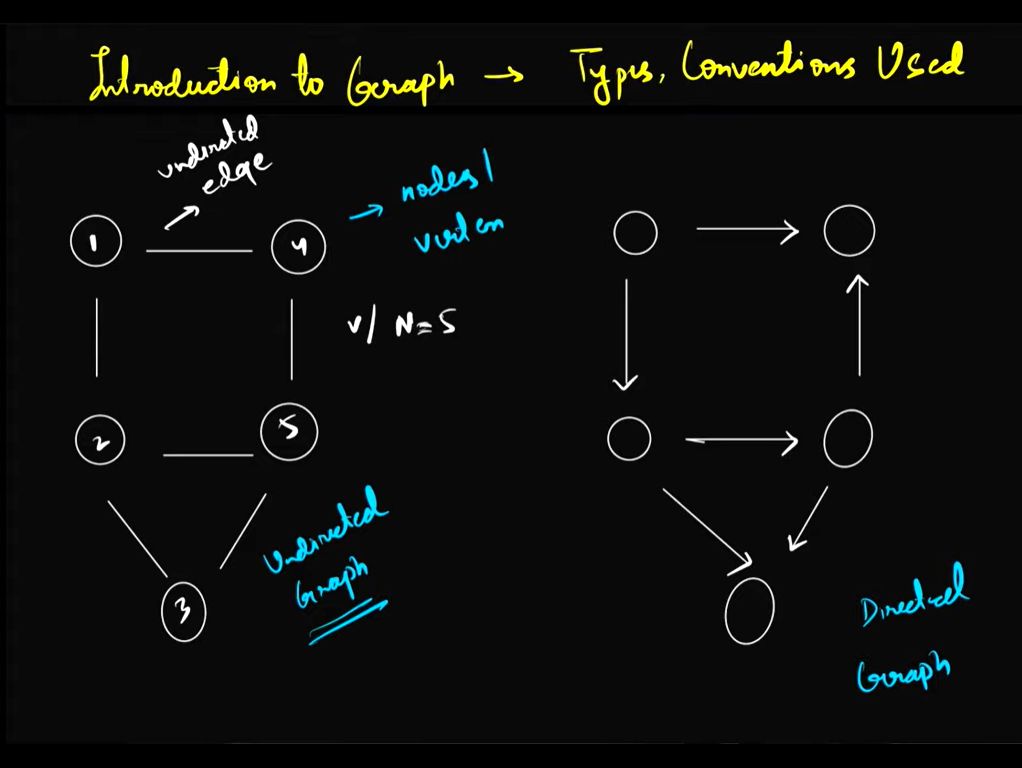 Introduction to Graph → Types, Conventions Used
undirected
edge
→ nodes/
vertex
1
4
V/ N=5
2
5
3
Undirected
Graph
Directed
Graph